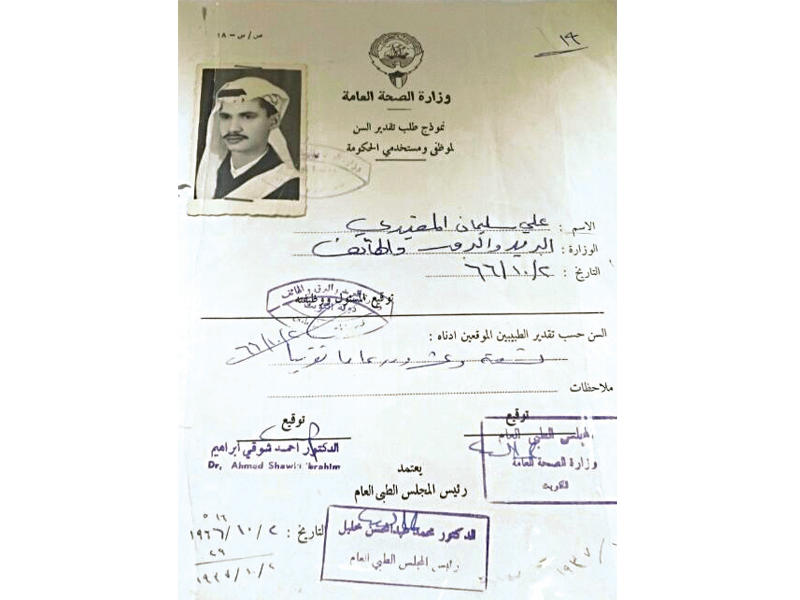 ص / س - ١٨
١٩
وزارة الصحة العامة
نموذج طلب تقدير السن
لموظفى ومستخدمي الحكومة
الاسم : علي سليمان
الوزارة : البريد والبرق والهاتف
التاريخ : ٦٦/١٠/٢
توقيع المسئول ووظيفته
٦٦/١٠/٢
السن حسب تقدير الطبيبين الموقعين ادناه :
تسعة وعشرون عاما تقريبا
ملاحظات
توقيع
توقيع
الدكتور احمد شوقي ابراهيم
Dr. Ahmed Shawki Ibrahim
المجلس الطبي العام
وزارة الصحة العامة
الكويت
يعتمد
رئيس المجلس الطبى العام
الدكتور محمد عبدالمحسن خليل
رئيس المجلس الطبي العام
التاريخ : ١٩٦٦/١٠/٢
٢٩
١٩٣٧/١٠/٢